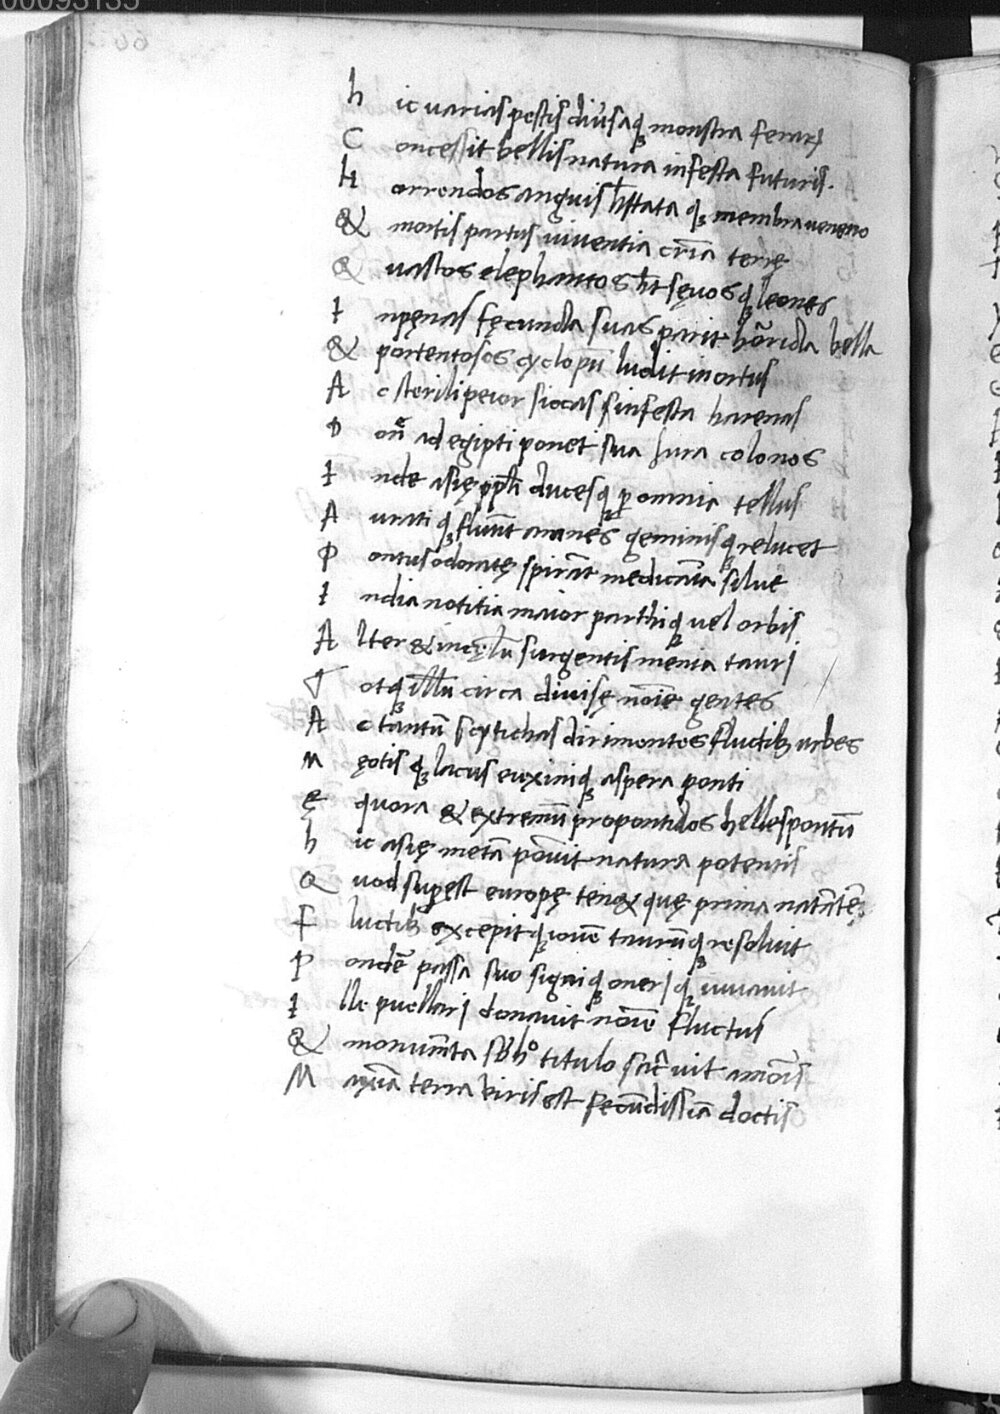 00093135
h ic uarias pestis diũsaq; monstra feraꝝ
C oncessit bellis natura infesta futuris.
H orrendos anguis hr̃tata q; membra ueneno
& mortis partus uiuentia crĩa terrę
& uastos elephantos ht̃ sęuos q; leones
I npęnas fęcunda suas parit hõrida bella
& portentosos cyclopũ ludit in ortus
A c sterili peior siccas infesta harenas
D onẽ ad egipti ponet sua iura colonos
I nde asię ppl̃i diuesq; ꝑ omnia tellus
A urati q; fluũt amnes geminisq; relucet
P ontus odoratę spirãt medicãta silue
I ndia notitia maior parthiq; uel orbis
A lter & in cęlũ surgentis menia tauri
T otq; illũ circa diuisę nõie gentes
A c tantũ scytichas dirimontos fluctibꝫ urbes
M ęotis q; lacus euxiniq; aspera ponti
Ę quora & extremũ propontidos hellespontũ
h ic asię metã posuit natura potentis
Q uod superest europę tenꝫ quę prima natãtẽ
F luctibꝫ excepit q; iouẽ taurũq; resoluit
P ondẽ passa suo signiq; oneri q; iuuauit
I lle puellari donauit nõie fluctus
& monumẽta sui hº titulo sacrauit amoris
M axĩa terra uiris est fecũdissĩa doctis